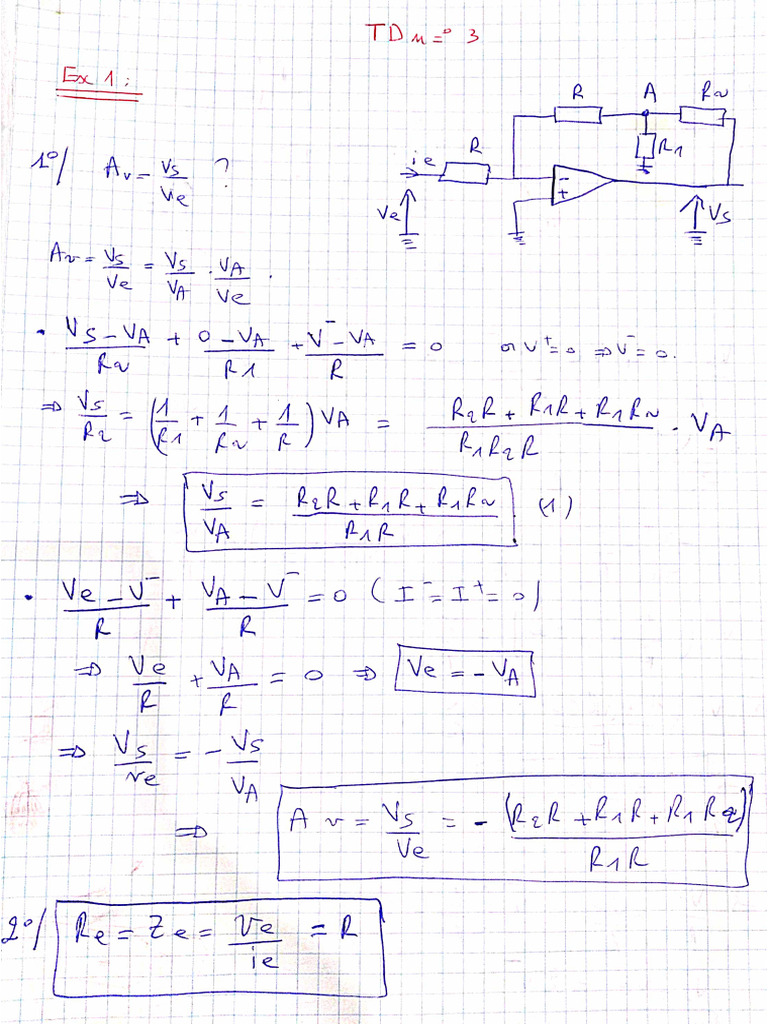 TD n=° 3
Ex 1:
R A R2
R1
R
ie
Ve
-
+
Vs
1°/ Av = Vs/Ve ?
Av = Vs/Ve = Vs/VA . VA/Ve .
• (Vs - VA)/R2 + (0 - VA)/R1 + (V⁻ - VA)/R = 0 or V⁺= 0 ⇒ V⁻= 0.
⇒ Vs/R2 = (1/R1 + 1/R2 + 1/R) VA = (R2R + R1R + R1R2)/(R1R2R) . VA
⇒ Vs/VA = (R2R + R1R + R1R2)/(R1R) (1)
• (Ve - V⁻)/R + (VA - V⁻)/R = 0 (I⁻= I⁺= 0)
⇒ Ve/R + VA/R = 0 ⇒ Ve = - VA
⇒ Vs/Ve = - Vs/VA
⇒ Av = Vs/Ve = - (R2R + R1R + R1R2)/(R1R)
2°/ Re = Ze = Ve/ie = R